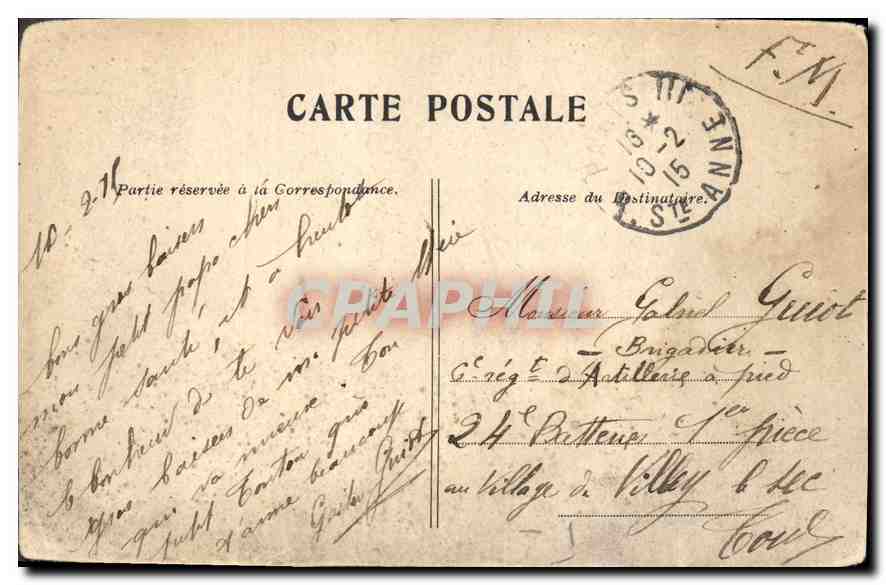 CARTE POSTALE
F.M.
PARIS III
18*
10-2
15
R. STE ANNE
Partie réservée à la Correspondance.
Adresse du Destinataire.
10-2-15
bons gros baisers
mon petit papa chéri
bonne santé, et à bientôt
le bonheur de te voir
gros baisers de ma petite Mère
qui va mieux. Ton
petit Tonton qui
t'aime beaucoup
Guiot
Monsieur Gabriel Guiot
- Brigadier -
6e régt d'Artillerie à pied
24e Batterie 1ère pièce
au Village de Villey le sec
Toul
CPAPHIL.com